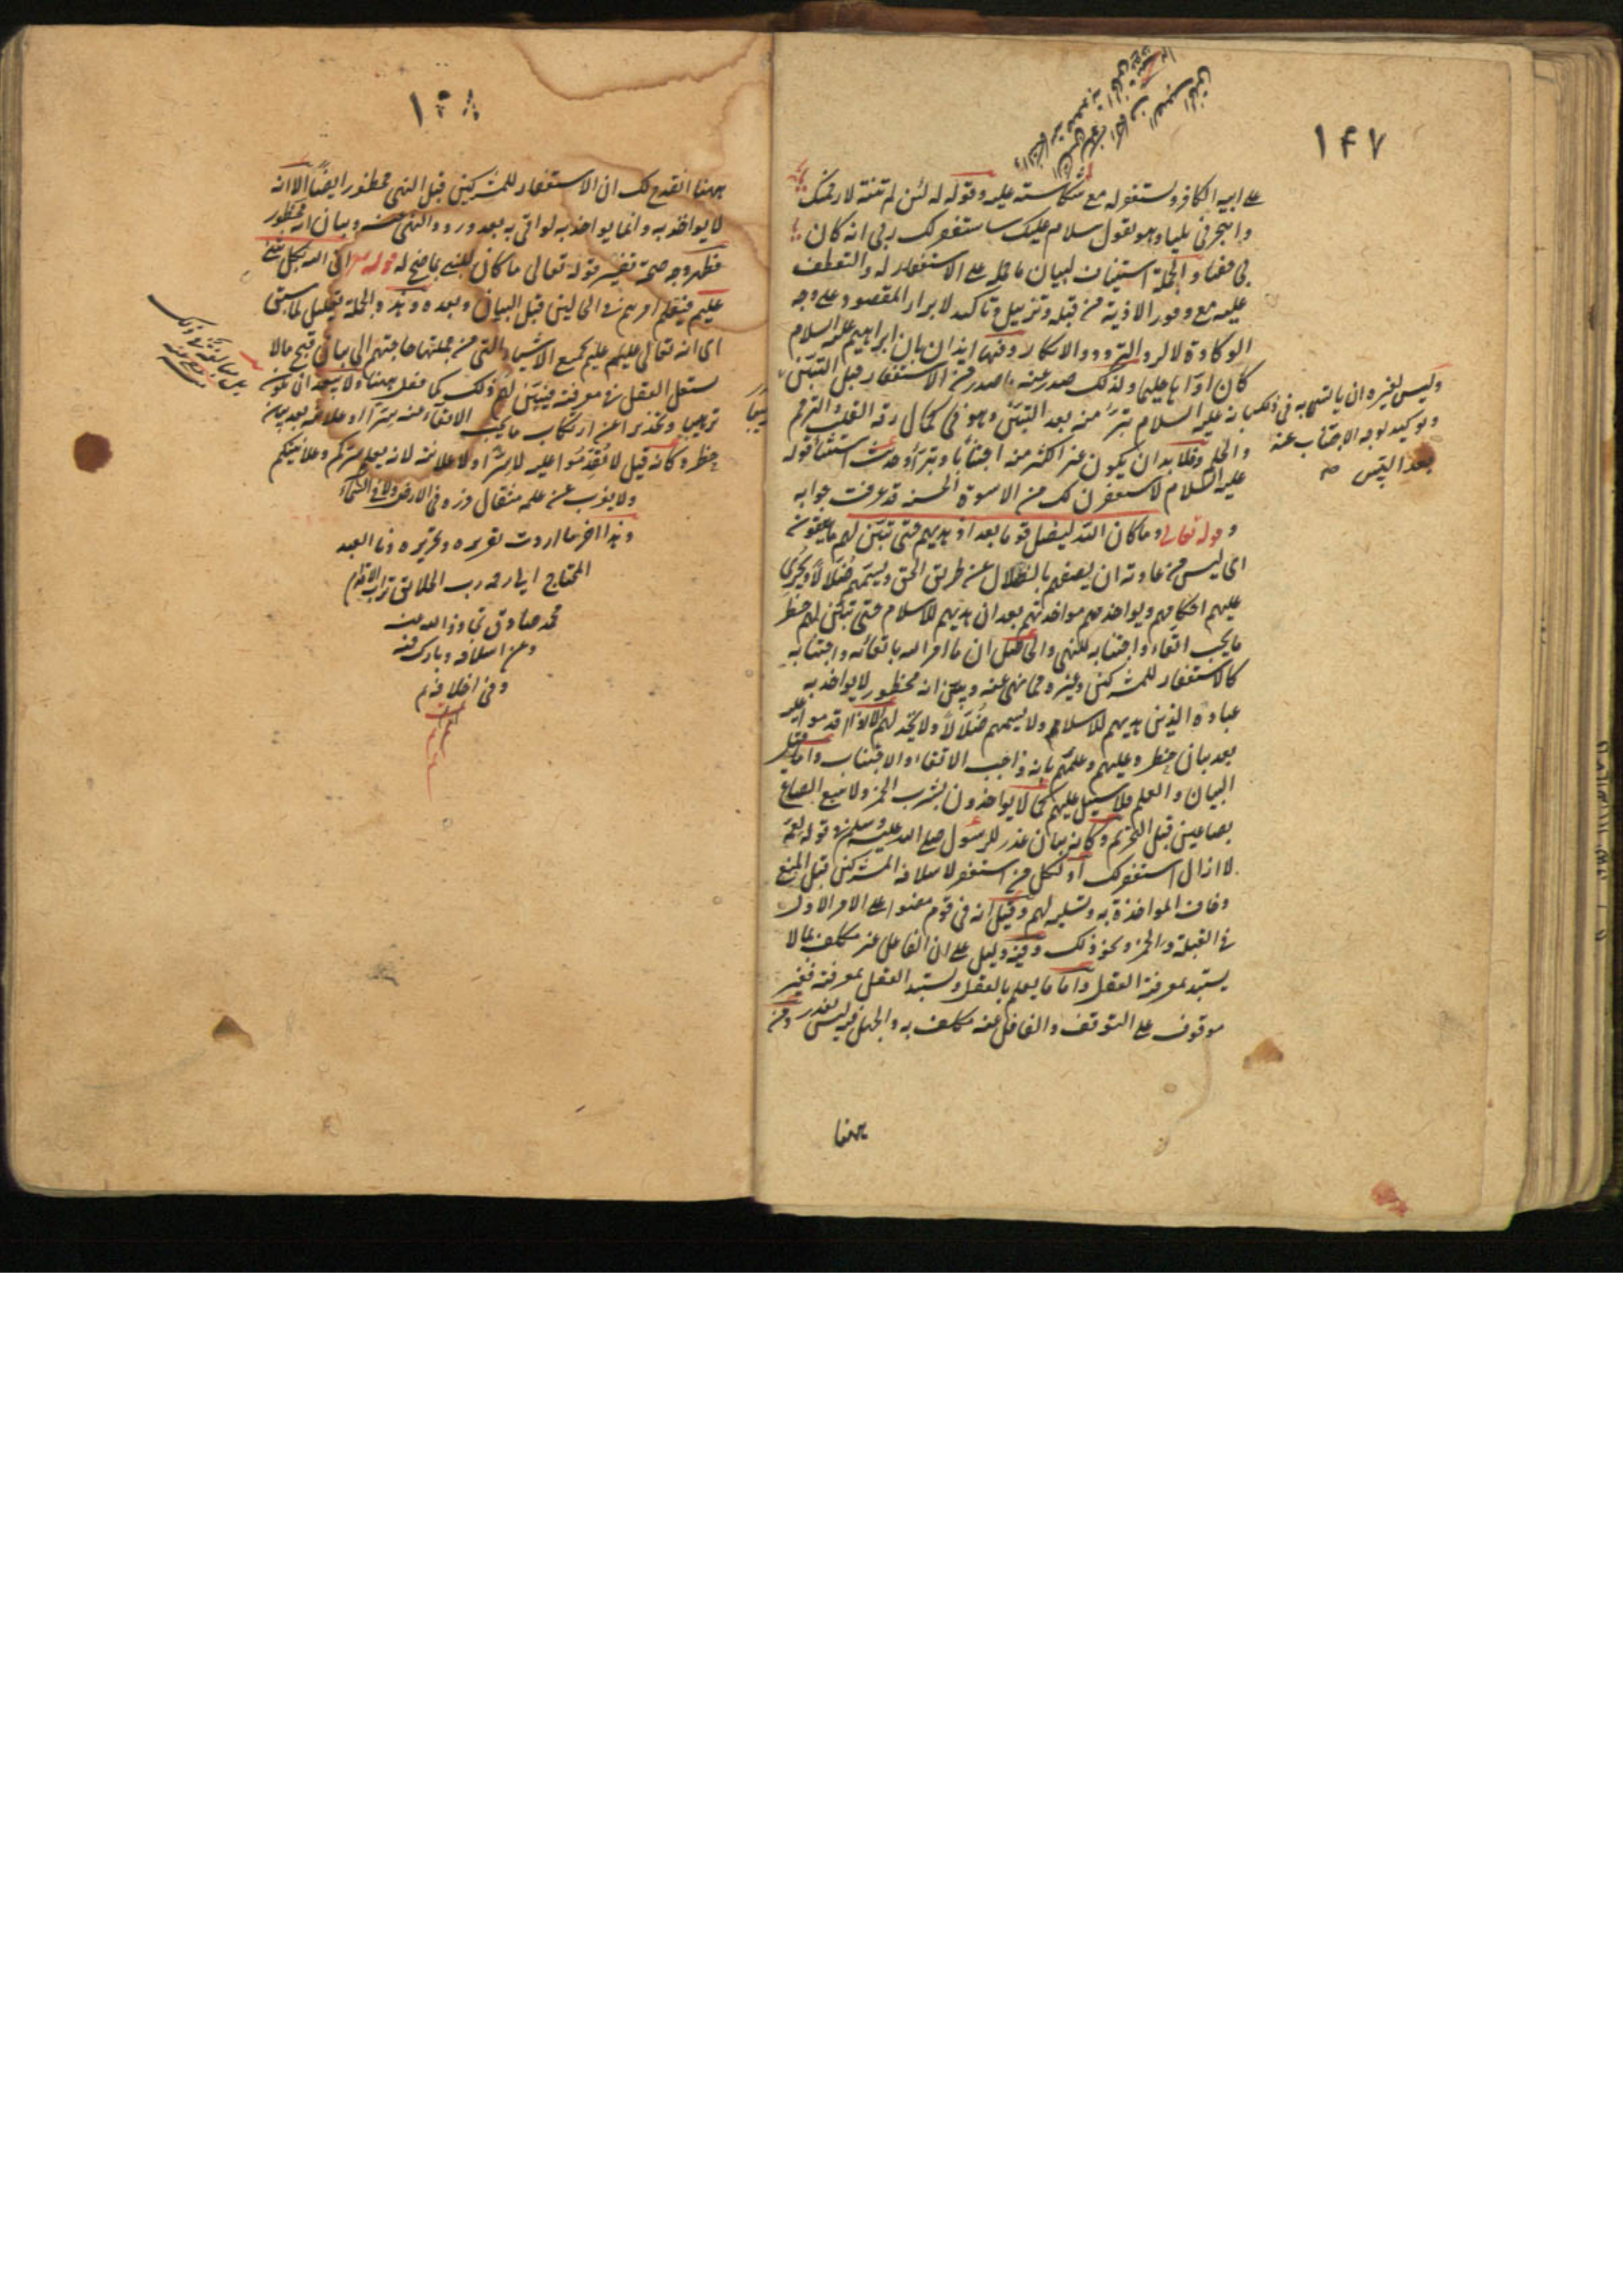 ١٤٧
على ابيه الكافر ويستغفر له مع شكاسته عليه وقوله له لئن لم تنته لارجمنك
واهجرني مليا وهو يقول سلام عليك ساستغفر لك ربي انه كان
بي حفيا والجملة استيناف لبيان ما حمله على الاستغفار له والتعطف
عليه مع وفور الاذية من قبله وتذييل وتاكيد لابرار المقصود على وجه
الوكادة لا لرد التردد والانكار وفيها ايذان بان ابراهيم عليه السلام
كان اواها حليما ولذلك صدر عنه ما صدر من الاستغفار قبل التبين
وليس لغيره ان ياتسي به في ذلك
وتوكيد لوجه الاجتناب عنه
بعد التبين صح
فانه عليه السلام تبرّأ منه بعد التبين وهو في كمال رقة القلب والترحم
والحلم فلا بد ان يكون غيره اكثر منه اجتنابا وتبرّأ وحديث استثنا قوله
عليه السلام لاستغفرن لك من الاسوة الحسنة قد عرفت جوابه
وقوله تعالى وما كان الله ليضل قوما بعد اذ هديهم حتى تبين لهم ما يتقون
اى ليس من عادته ان يصفهم بالضلال عن طريق الحق ويسميهم ضُلّالاً ويُجري
عليهم احكامهم ويواخذهم مواخذتهم بعد ان هديهم للاسلام حتى تبين لهم حظر
ما يجب اتقاءه واجتنابه للنهي والحاصل ان ما امر الله باتقائه واجتنابه
كالاستغفار للمشركين وغيره مما نهى عنه وبين انه محظور لا يواخذ به
عباده الذين هديهم للاسلام ولا يسميهم ضُلّالاً ولا يخذلهم الا اذا اقدموا عليه
بعد بيان حظره عليهم وعلمهم بانه واجب الاتقاء والاجتناب واما قبل
البيان والعلم فلا سبيل عليهم كما لا يواخذون بشرب الخمر ولا ببيع الصاع
بصاعين قبل التحريم وكانه بيان عذر للرسول صلى الله عليه وسلم في قوله لعمه
لا ازال استغفر لك او لكل من استغفر لاسلافه المشركين قبل المنع
وخاف المواخذة به وتسلية لهم وقيل انه في قوم مضوا على الامر الاول
في القبلة والخمر ونحو ذلك وفيه دليل على ان الغافل غير مكلف بما لا
يستبد بمعرفته العقل واما ما يعلم بالعقل ويستبد العقل بمعرفته فغير
موقوف على التوقف والغافل عنه مكلف به والجهل فيه ليس بعذر ومن
ههنا
١٤٨
ههنا انقدح لك ان الاستغفار للمشركين قبل النهي محظور ايضًا الا انه
لا يواخذ به وانما يواخذ به لو اتى به بعد ورود النهي عنه وبيان انه محظور
فظهر وجه صحة تفسير قوله تعالى ما كان للنبي بما صح له قوله تعالى ان الله بكل شئ
عليم فيعلم امرهم في الحالين قبل البيان وبعده وهذه الجملة تعليل لما سبق
اى انه تعالى عليم بجميع الاشياء التي من جملتها حاجتهم الى بيان قبح ما لا
يستقل العقل في معرفته فيبين لهم ذلك كما فعل ههنا ولا يبعد ان يكون
ترهيبا وتحذيرا عن ارتكاب ما يجب الاتقاء عنه سرّا او علانية بعد بيان
حظره كانه قيل لا تُقدِموا عليه لا سرّا ولا علانية لانه يعلم سركم وعلانيتكم
ولا يعزب عن علمه مثقال ذرة في الارض ولا في السماء
وهذا اخر ما اردت تقريره وتحريره وانا العبد
المحتاج الى رحمة رب الخلائق تراب الاقدام
محمد صادق تجاوز الله عنه
وعن اسلافه وبارك فيه
وفي اخلافه م